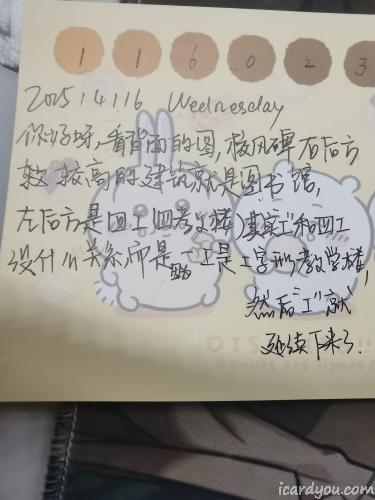 1 1 6 0 2 3
2025.4.16 Wednesday
你好呀,看背面的图,校风碑右后方
较较高的建筑就是图书馆,
左后方是四工(四号教学楼)其实"工"和四工
没什么关系,而是一工是工字型教学楼,
然后"工"就
延续下来了.
icardyou.com